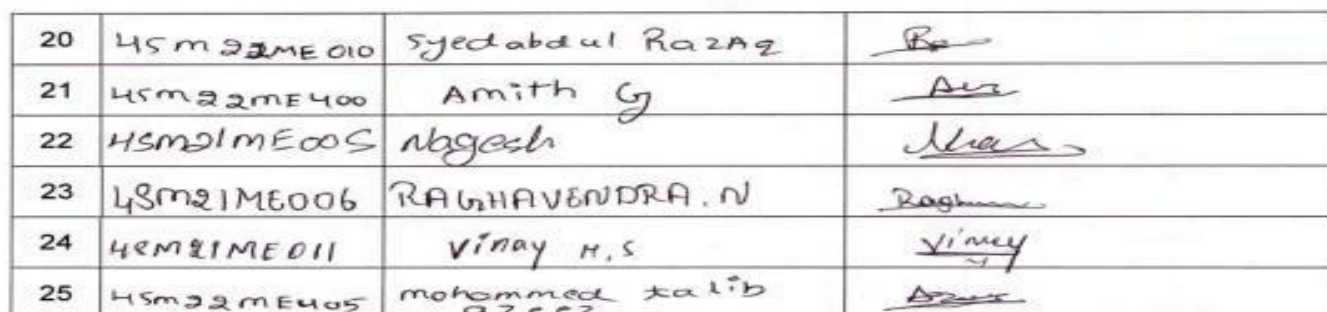 20 4SM22ME010 Syedabdul RazAq
21 4SM22ME400 Amith G
22 4SM21ME005 Nagesh
23 4SM21ME006 RAGHAVENDRA.N Raghu
24 4SM21ME011 Vinay H.S Vinay
25 4SM22ME405 mohammed talib
azeez